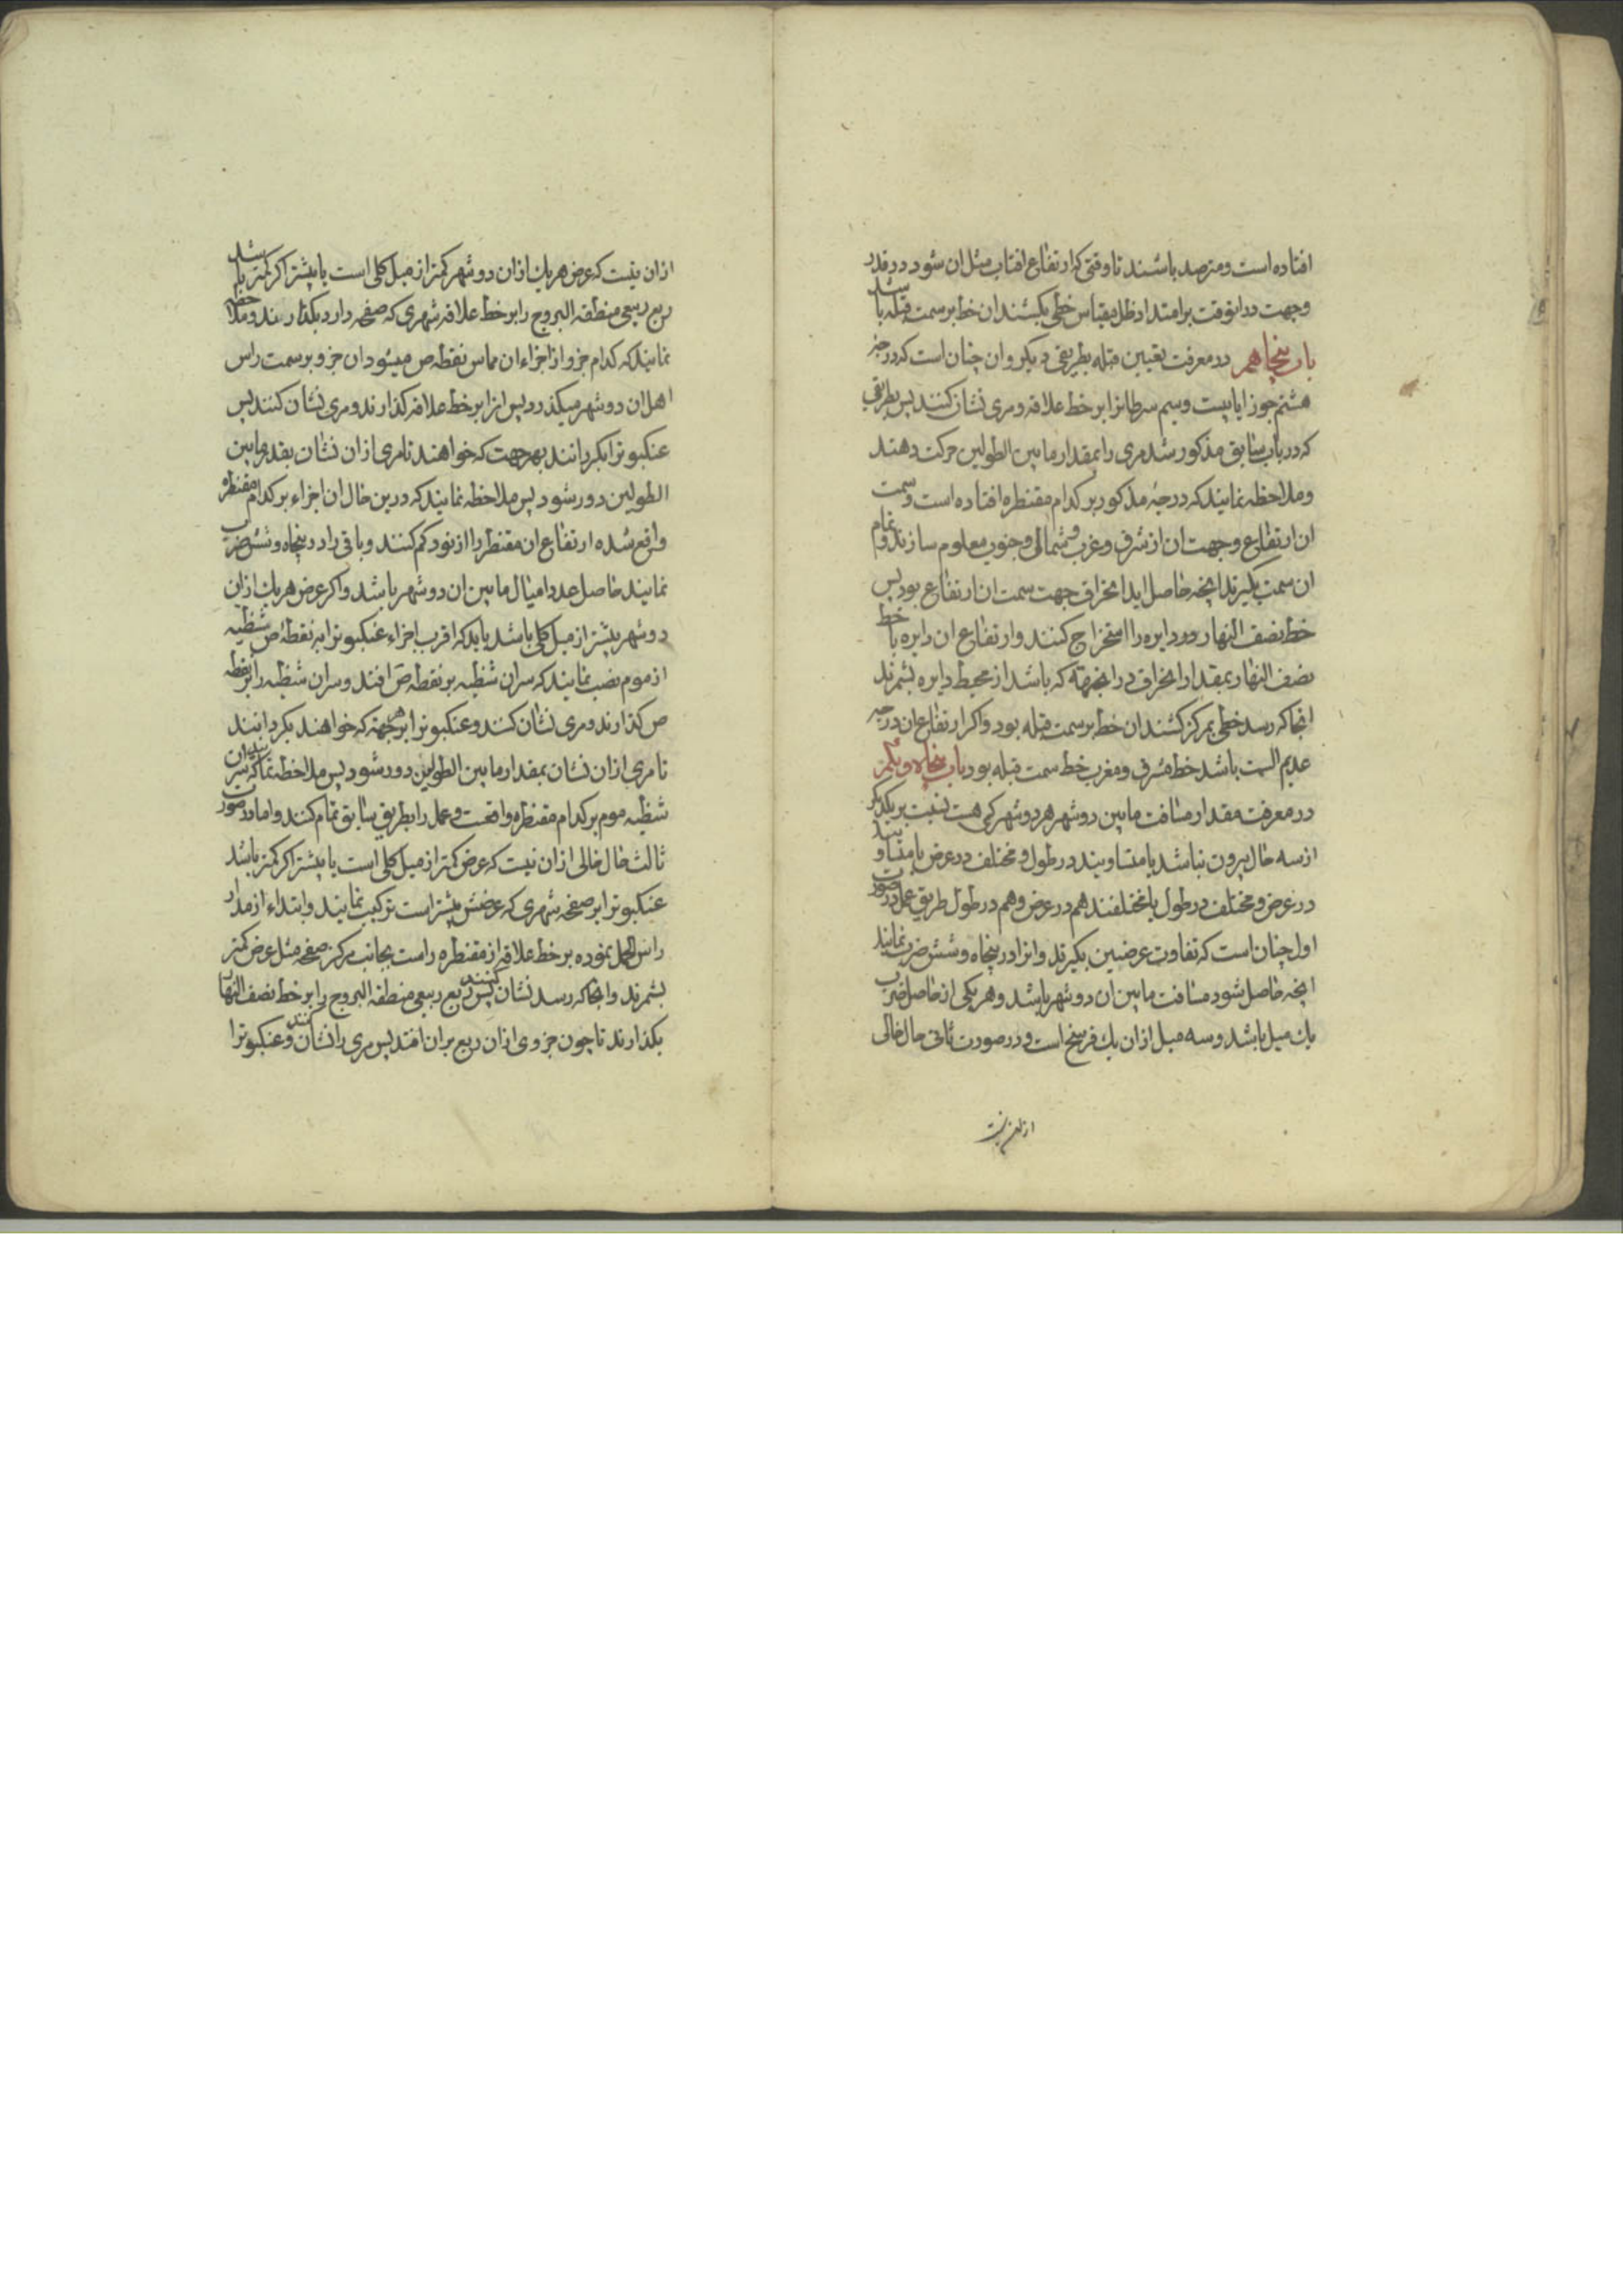 افتاده است و مترصد باشند تا وقتی که ارتفاع افتاب مثل ان شود در قدر
وجهت در انوقت بر امتداد ظل مقیاس خطی بکشند ان خط بر سمت قبله باشد
باب پنجاهم در معرفت تعیین قبله بطریقی دیکر و ان چنان است که درجه
هشتم جوزا یا بیست و سیم سرطانرا بر خط علاقه و مری نشان کنند پس بطریقی
که در باب سابق مذکور شد مری را بمقدار ما بین الطولین حرکت دهند
و ملاحظه نمایند که درجهٔ مذکور بر کدام مقنطره افتاده است و سمت
ان ارتفاع وجهت ان از شرقی و غربی و شمالی و جنوبی معلوم سازند و تمام
ان سمت بکیرند انچه حاصل اید انحراف جهت سمت ان ارتفاع بود پس
خط نصف النهار در دایره را استخراج کنند و ارتفاع ان دایره با خط
نصف النهار بمقدار انحراف در انجهة که باشد از محیط دایره بشمرند
انجا که رسد خطی بمرکز کشند ان خط بر سمت قبله بود و اکر ارتفاع ان درجه
عدیم السمت باشد خط مشرق و مغرب خط سمت قبله بود باب پنجاه و یکم
در معرفت مقدار مسافت ما بین دو شهر هر دو شهر که هست نسبت بر یکدیکر
از سه حال بیرون نباشد یا متساویند در طول و مختلف در عرض یا متساویند
در عرض و مختلف در طول یا مختلفند هم در عرض و هم در طول طریق عمل در صورت
اول چنان است که تفاوت عرضین بکیرند و انرا در پنجاه و شش ضرب نمایند
انچه حاصل شود مسافت ما بین ان دو شهر باشد و هر یکی از حاصل ضرب
یک میل باشد و سه میل از ان یک فرسخ است و در صورت ثانی حال خالی
از ان نیست
از ان نیست که عرض هر یک از ان دو شهر کمتر از میل کلی است یا بیشتر اکر کمتر باشد
ربع ربیعی منطقه البروج را بر خط علاقه شهری که صفحه دارد بکذارند و ملاحظه
نمایند که کدام جزو از اجزاء ان مماس نقطه ص میشود ان جزو بر سمت راس
اهل ان دو شهر میکذرد پس انرا بر خط علاقه کذارند و مری نشان کنند پس
عنکبوترا بکردانند بهر جهت که خواهند تا مری از ان نشان بقدر ما بین
الطولین دور شود پس ملاحظه نمایند که درین حال ان اجزاء بر کدام مقنطره
واقع شده ارتفاع ان مقنطره را از نود کم کنند و باقی را در پنجاه و شش ضرب
نمایند حاصل عدد امیال ما بین ان دو شهر باشد و اکر عرض هر یک از ان
دو شهر بیشتر از میل کلی باشد باید که اقرب اجزاء عنکبوترا به نقطهٔ ص شظیه
از موم نصب نمایند که سر ان شظیه بر نقطه ص افتد و سر ان شظیه را بر نقطه
ص کذارند و مری نشان کنند و عنکبوترا بهر جهة که خواهند بکردانند
تا مری از ان نشان بمقدار ما بین الطولین دور شود پس ملاحظه نمایند که سر ان
شظیه موم بر کدام مقنطره واقعست و عمل را بطریق سابق تمام کنند و اما در صورت
ثالث حال خالی از ان نیست که عرض کمتر از میل کلی است یا بیشتر اکر کمتر باشد
عنکبوترا بر صفحه شهری که عرضش بیشتر است ترکیب نمایند و ابتداء از مدار
راس الحمل نموده بر خط علاقه از مقنطره راست بجانب مرکز صفحه مثل عرض کمتر
بشمرند و انجا که رسد نشان کنند پس ربع ربیعی منطقه البروج را بر خط نصف النهار
بکذارند تا چون جزوی از ان ربع بر ان افتد پس مری را نشان کنند و عنکبوترا